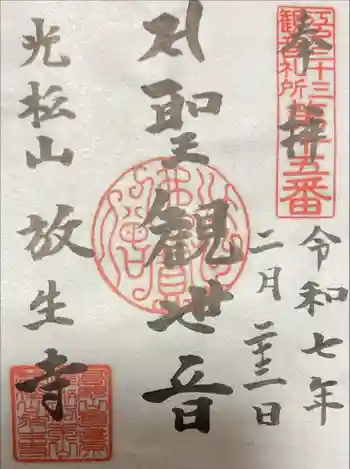 奉拝
江戸三十三
観音札所
第十五番
令和七年
二月二十三日
聖観世音
光松山
放生寺